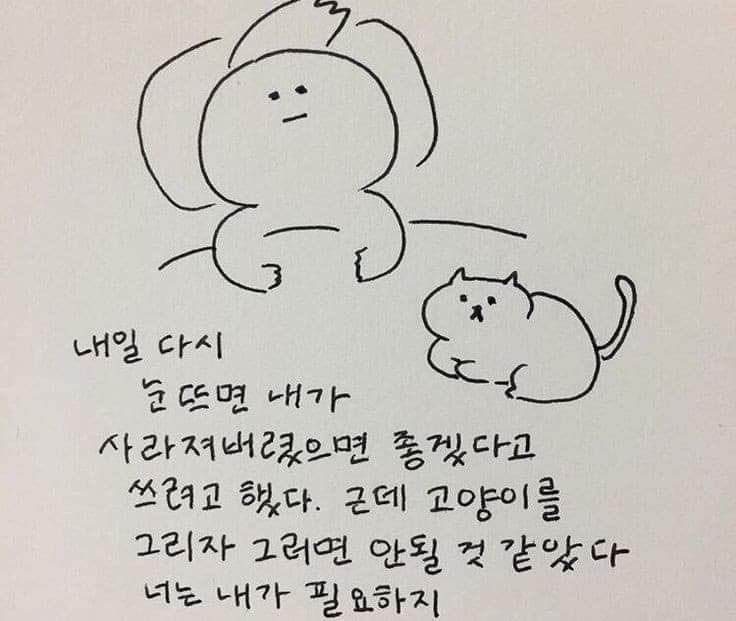 내일 다시
눈뜨면 내가
사라져버렸으면 좋겠다고
쓰려고 했다. 근데 고양이를
그리자 그러면 안될 것 같았다
너는 내가 필요하지